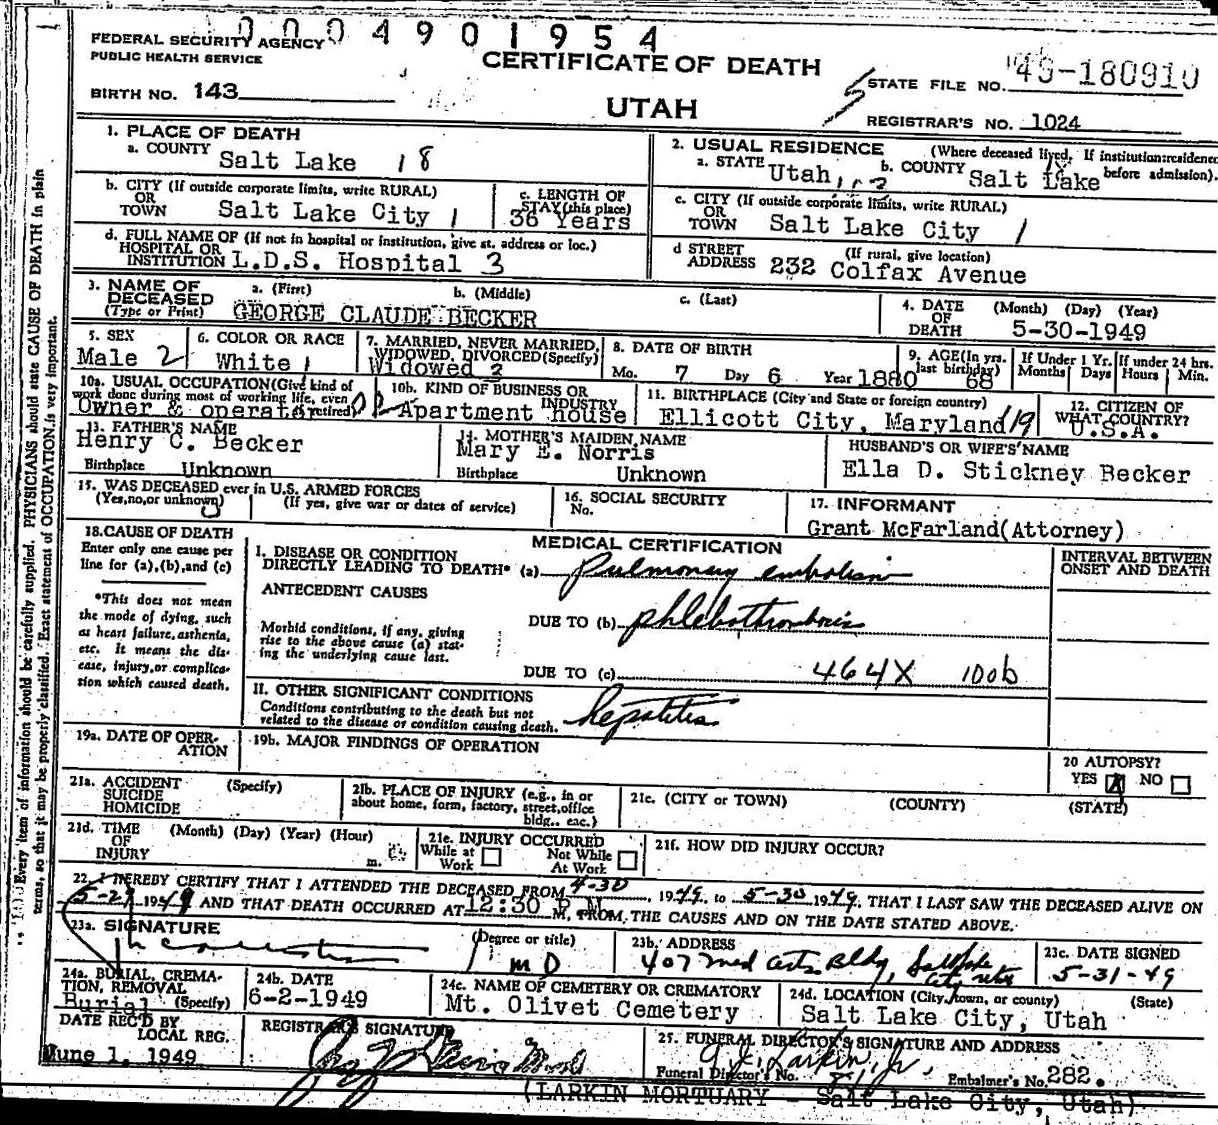 0004901954
FEDERAL SECURITY AGENCY
PUBLIC HEALTH SERVICE
CERTIFICATE OF DEATH
STATE FILE NO. 49-180910
BIRTH NO. 143
UTAH
REGISTRAR'S NO. 1024
1. PLACE OF DEATH
a. COUNTY Salt Lake 18
2. USUAL RESIDENCE (Where deceased lived. If institution:residence before admission).
a. STATE Utah b. COUNTY Salt Lake
b. CITY (If outside corporate limits, write RURAL) OR TOWN Salt Lake City 1
c. LENGTH OF STAY (this place) 36 Years
c. CITY (If outside corporate limits, write RURAL) OR TOWN Salt Lake City 1
d. FULL NAME OF (If not in hospital or institution, give st. address or loc.) HOSPITAL OR INSTITUTION L.D.S. Hospital 3
d STREET ADDRESS (If rural, give location) 232 Colfax Avenue
3. NAME OF DECEASED (Type or Print) a. (First) b. (Middle) c. (Last)
GEORGE CLAUDE BECKER
4. DATE OF DEATH (Month) (Day) (Year)
5-30-1949
5. SEX Male 2
6. COLOR OR RACE White 1
7. MARRIED, NEVER MARRIED, WIDOWED, DIVORCED(Specify) Widowed 3
8. DATE OF BIRTH Mo. 7 Day 6 Year 1880
9. AGE(In yrs. last birthday) 68
If Under 1 Yr. Months Days
If under 24 hrs. Hours Min.
10a. USUAL OCCUPATION(Give kind of work done during most of working life, even if retired) Owner & operator
10b. KIND OF BUSINESS OR INDUSTRY Apartment house
11. BIRTHPLACE (City and State or foreign country)
Ellicott City, Maryland 19
12. CITIZEN OF WHAT COUNTRY? U.S.A.
13. FATHER'S NAME
Henry C. Becker
Birthplace Unknown
14. MOTHER'S MAIDEN NAME
Mary E. Norris
Birthplace Unknown
HUSBAND'S OR WIFE'S NAME
Ella D. Stickney Becker
15. WAS DECEASED ever in U.S. ARMED FORCES
(Yes,no,or unknown) (If yes, give war or dates of service)
16. SOCIAL SECURITY No.
17. INFORMANT
Grant McFarland(Attorney)
18. CAUSE OF DEATH
Enter only one cause per line for (a),(b),and (c)
*This does not mean the mode of dying, such as heart failure, asthenia, etc. It means the disease, injury, or complication which caused death.
MEDICAL CERTIFICATION
INTERVAL BETWEEN ONSET AND DEATH
I. DISEASE OR CONDITION DIRECTLY LEADING TO DEATH* (a) Pulmonary embolism
ANTECEDENT CAUSES
Morbid conditions, if any, giving rise to the above cause (a) stating the underlying cause last.
DUE TO (b) phlebothrombosis
DUE TO (c) 464X 100b
II. OTHER SIGNIFICANT CONDITIONS
Conditions contributing to the death but not related to the disease or condition causing death. hepatitis
19a. DATE OF OPERATION
19b. MAJOR FINDINGS OF OPERATION
20 AUTOPSY?
YES X NO
21a. ACCIDENT SUICIDE HOMICIDE (Specify)
21b. PLACE OF INJURY (e.g., in or about home, form, factory, street, office bldg., eac.)
21c. (CITY or TOWN) (COUNTY) (STATE)
21d. TIME OF INJURY (Month) (Day) (Year) (Hour) m.
21e. INJURY OCCURRED While at Work Not While At Work
21f. HOW DID INJURY OCCUR?
22. I HEREBY CERTIFY THAT I ATTENDED THE DECEASED FROM 4-30, 1949, to 5-30 1949, THAT I LAST SAW THE DECEASED ALIVE ON
5-29 1949 AND THAT DEATH OCCURRED AT 12:30 P M M, FROM THE CAUSES AND ON THE DATE STATED ABOVE.
23a. SIGNATURE (Degree or title) MD
23b. ADDRESS 407 Med Arts Bldg, Salt Lake City
23c. DATE SIGNED 5-31-49
24a. BURIAL, CREMATION, REMOVAL (Specify) Burial
24b. DATE 6-2-1949
24c. NAME OF CEMETERY OR CREMATORY
Mt. Olivet Cemetery
24d. LOCATION (City, town, or county) (State)
Salt Lake City, Utah
DATE REC'D BY LOCAL REG. June 1, 1949
REGISTRAR'S SIGNATURE
25. FUNERAL DIRECTOR'S SIGNATURE AND ADDRESS
Larkin, Jr.
Funeral Director's No. Embalmer's No. 282.
(LARKIN MORTUARY - Salt Lake City, Utah)
Every item of information should be carefully supplied. PHYSICIANS should state CAUSE OF DEATH in plain
terms, so that it may be properly classified. Exact statement of OCCUPATION is very important.